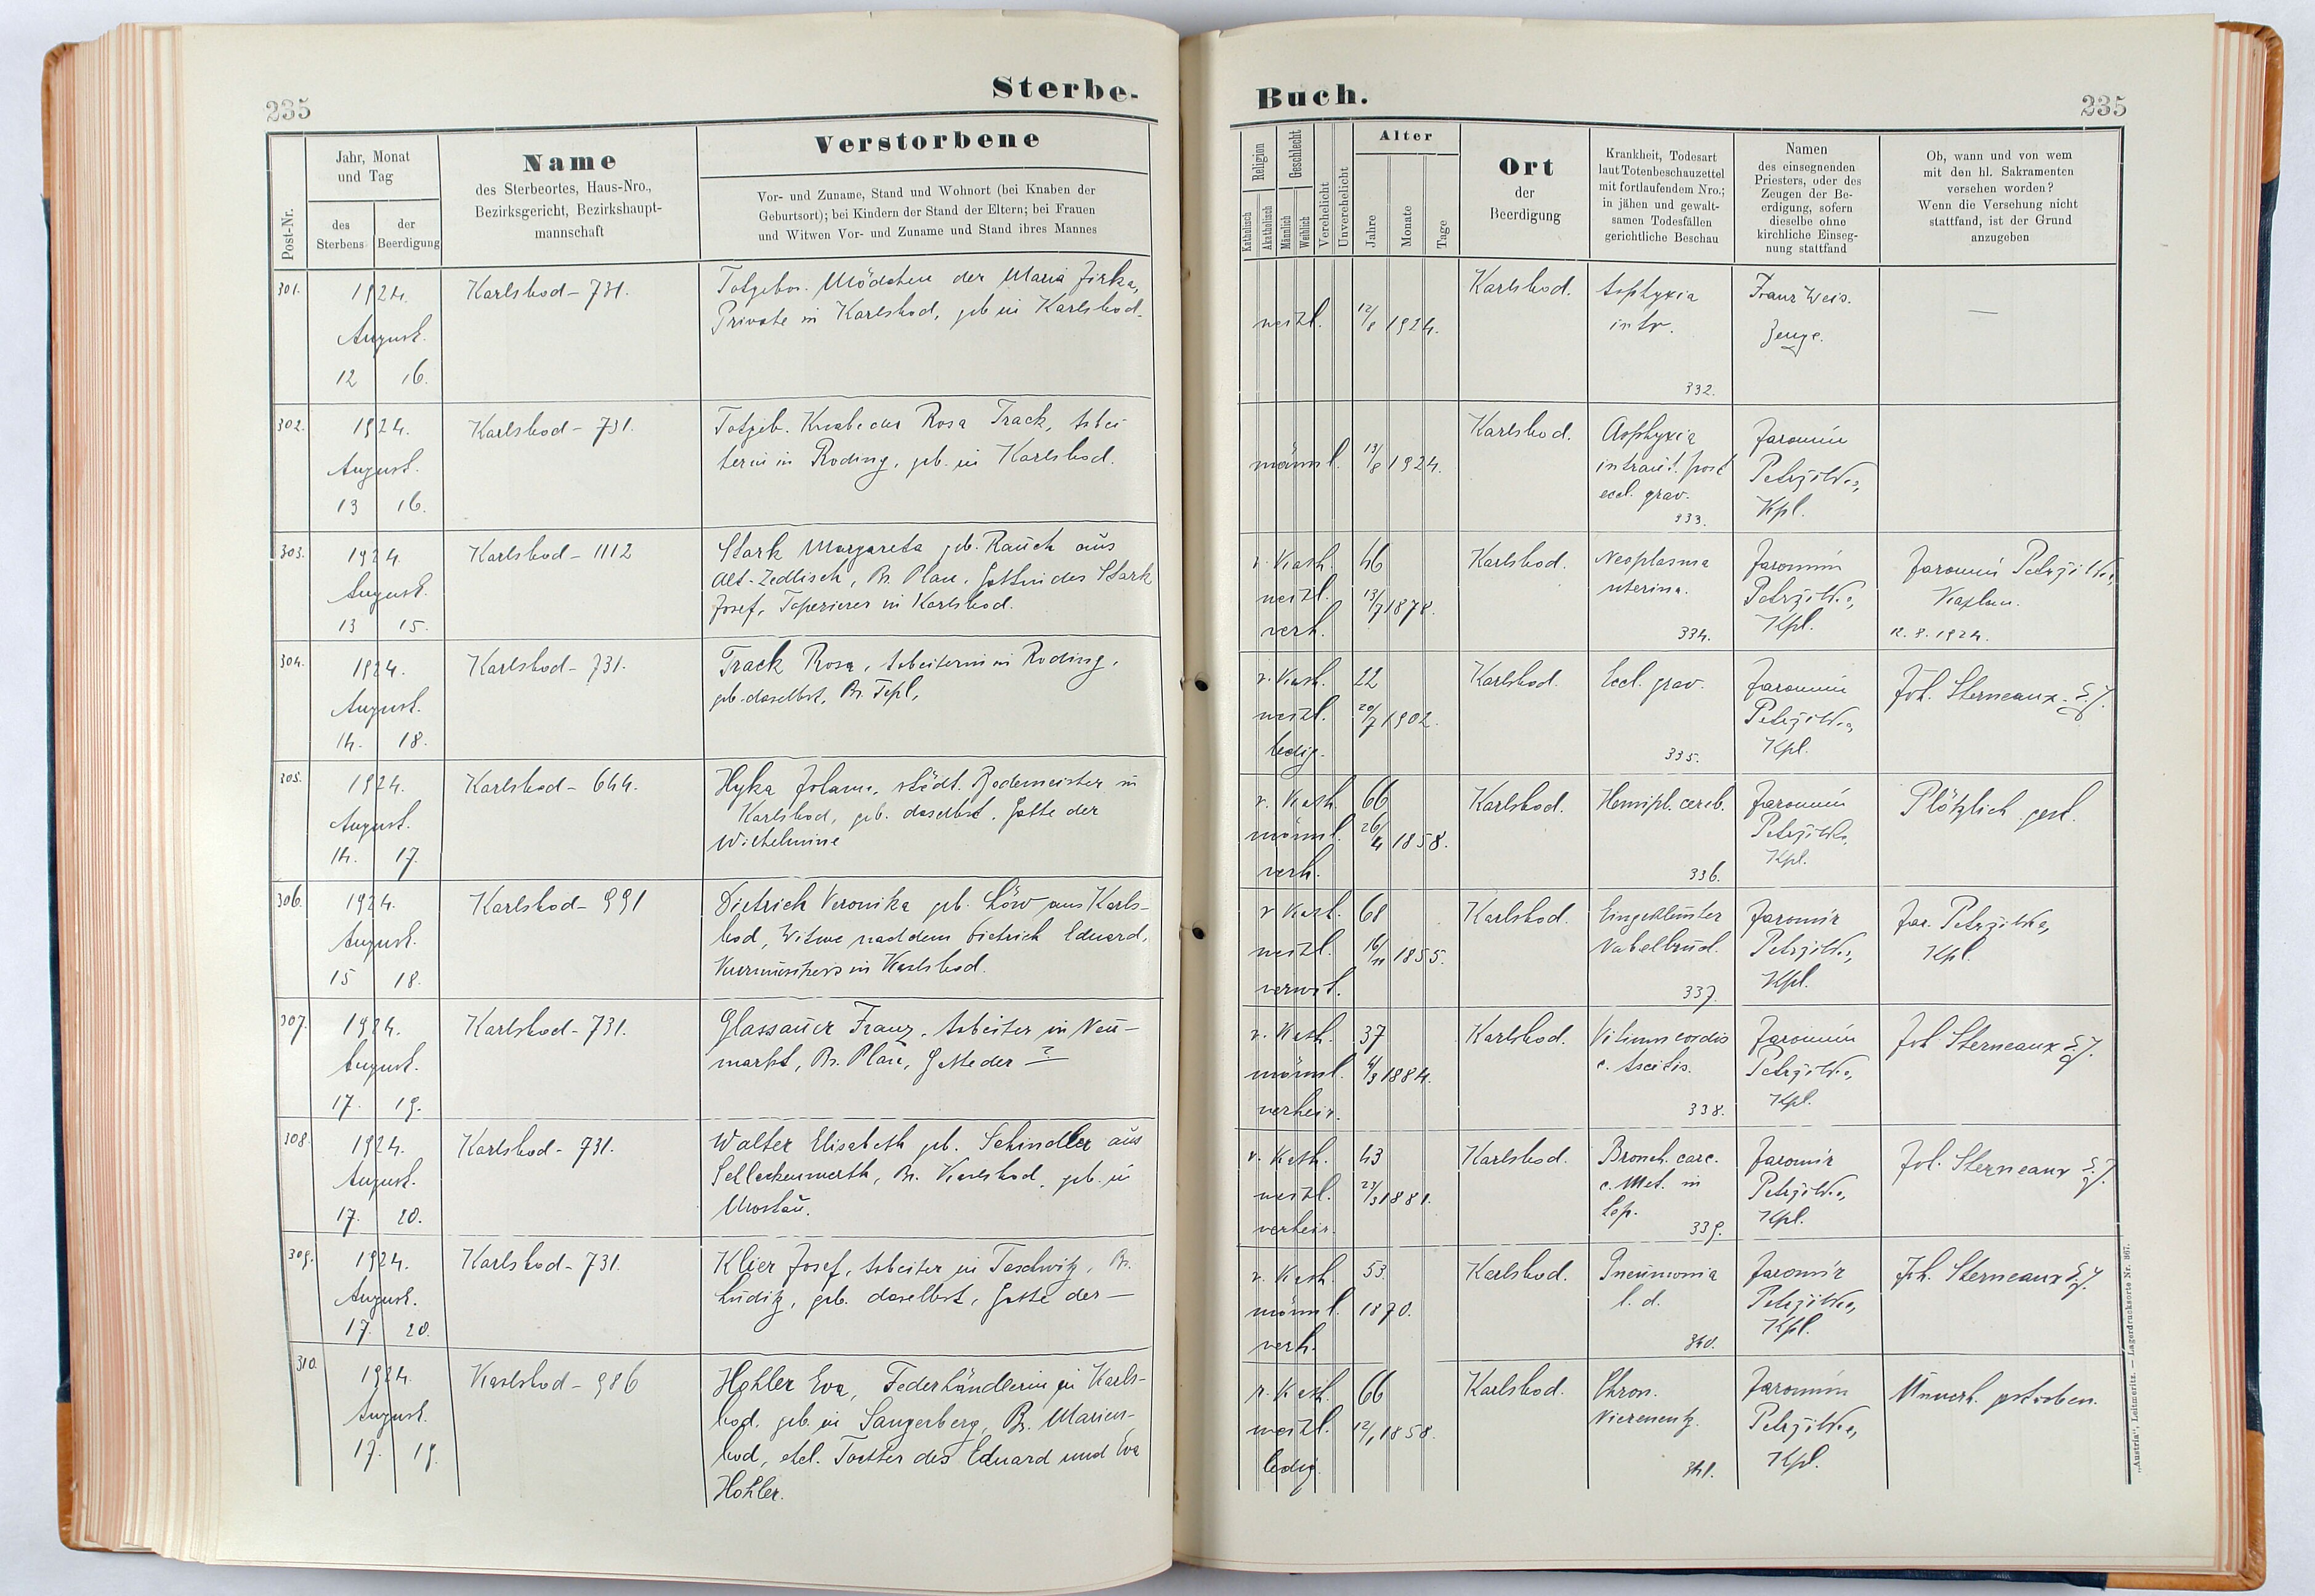 235
Sterbe-
Post-Nr.
Jahr, Monat
und Tag
des
Sterbens
der
Beerdigung
Name
des Sterbeortes, Haus-Nro.,
Bezirksgericht, Bezirkshaupt-
mannschaft
Verstorbene
Vor- und Zuname, Stand und Wohnort (bei Knaben der
Geburtsort); bei Kindern der Stand der Eltern; bei Frauen
und Witwen Vor- und Zuname und Stand ihres Mannes
301.
1924.
August.
12 16.
Karlsbad - 731.
Totgebor. Mädchen der Maria Jirka,
Private in Karlsbad, geb in Karlsbad.
302.
1924.
August.
13 16.
Karlsbad - 731.
Totgeb. Knabe der Rosa Track, Arbei-
terin in Roding, geb. in Karlsbad.
303.
1924.
August.
13 15.
Karlsbad - 1112
Stark Margareta geb. Rauch aus
Alt-Zedlisch, Bz. Plan, Gattin des Stark
Josef, Tapezierer in Karlsbad.
304.
1924.
August.
14. 18.
Karlsbad - 731.
Track Rosa, Arbeiterin in Roding,
geb. daselbst, Bz. Tepl,
305.
1924.
August.
14. 17.
Karlsbad - 644.
Hyka Johann, städt. Bademeister in
Karlsbad, geb. daselbst, Gatte der
Wilhelmine
306.
1924.
August.
15 18.
Karlsbad - 991
Dietrich Veronika geb. Löw aus Karls-
bad, Witwe nach dem Dietrich Eduard,
Kurmusikers in Karlsbad.
307.
1924.
August.
17. 19.
Karlsbad - 731.
Glassauer Franz, Arbeiter in Neu-
markt, Bz. Plan, Gatte der — ?
308.
1924.
August.
17. 20.
Karlsbad - 731.
Walter Elisabeth geb. Schindler aus
Schlackenwerth, Bz. Karlsbad, geb. in
Mostau.
309.
1924.
August.
17. 20.
Karlsbad - 731.
Klier Josef, Arbeiter in Taschwitz, Bz.
Luditz, geb. daselbst, Gatte der —
310.
1924.
August.
17. 19.
Karlsbad - 986
Hohler Eva, Federhändlerin in Karls-
bad, geb. in Sangerberg, Bz. Marien-
bad, ehel. Tochter des Eduard und Eva
Hohler.
Buch.
235
Religion
Katholisch
Akatholisch
Geschlecht
Männlich
Weiblich
Verehelicht
Unverehelicht
Alter
Jahre
Monate
Tage
Ort
der
Beerdigung
Krankheit, Todesart
laut Totenbeschauzettel
mit fortlaufendem Nro.;
in jähen und gewalt-
samen Todesfällen
gerichtliche Beschau
Namen
des einsegnenden
Priesters, oder des
Zeugen der Be-
erdigung, sofern
dieselbe ohne
kirchliche Einseg-
nung stattfand
Ob, wann und von wem
mit den hl. Sakramenten
versehen worden?
Wenn die Versehung nicht
stattfand, ist der Grund
anzugeben
weibl.
12/8 1924.
Karlsbad.
Asphyxia
intr.
332.
Franz Weis.
Zeuge.
—
männl.
13/8 1924.
Karlsbad.
Asphyxia
intraut. post
eccl. grav.
333.
Jaromír
Petrzilka,
Kpl.
r. Kath.
weibl.
verh.
46
13/7 1878.
Karlsbad.
Neoplasma
uterina.
334.
Jaromír
Petrzilka,
Kpl.
Jaromír Petrzilka,
Kaplan.
12. 8. 1924.
r. Kath.
weibl.
ledig.
22
20/7 1902.
Karlsbad.
Eccl. grav.
335.
Jaromír
Petrzilka,
Kpl.
Joh. Sterneaux S. J.
r. Kath.
männl.
verh.
66
26/4 1858.
Karlsbad.
Hemipl. cereb.
336.
Jaromír
Petrzilka,
Kpl.
Plötzlich gest.
r Kath.
weibl.
verwit.
68
16/11 1855.
Karlsbad.
Eingeklemter
Nabelbruch.
337.
Jaromír
Petrzilka,
Kpl.
Jar. Petrzilka,
Kpl.
r. Kath.
männl.
verheir.
37
4/3 1884.
Karlsbad.
Vitium cordis
c. Ascitis.
338.
Jaromír
Petrzilka,
Kpl.
Joh Sterneaux S. J.
r. Kath.
weibl.
verheir.
43
23/3 1881.
Karlsbad.
Bronch. carc.
c. Met. in
hep.
339.
Jaromír
Petrzilka,
Kpl.
Joh. Sterneaux S. J.
r. Kath.
männl.
verh.
53
1870.
Karlsbad.
Pneumonia
l. d.
340.
Jaromír
Petrzilka,
Kpl.
Joh. Sterneaux S. J.
r. Kath.
weibl.
ledig.
66
12/1 1858.
Karlsbad.
Chron.
Nierenentz.
341.
Jaromír
Petrzilka,
Kpl.
Unverh. gestorben.
„Austria“, Leitmeritz. — Lagerdrucksorte Nr. 367.